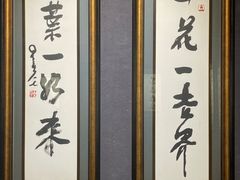 花一世界
葉一如来